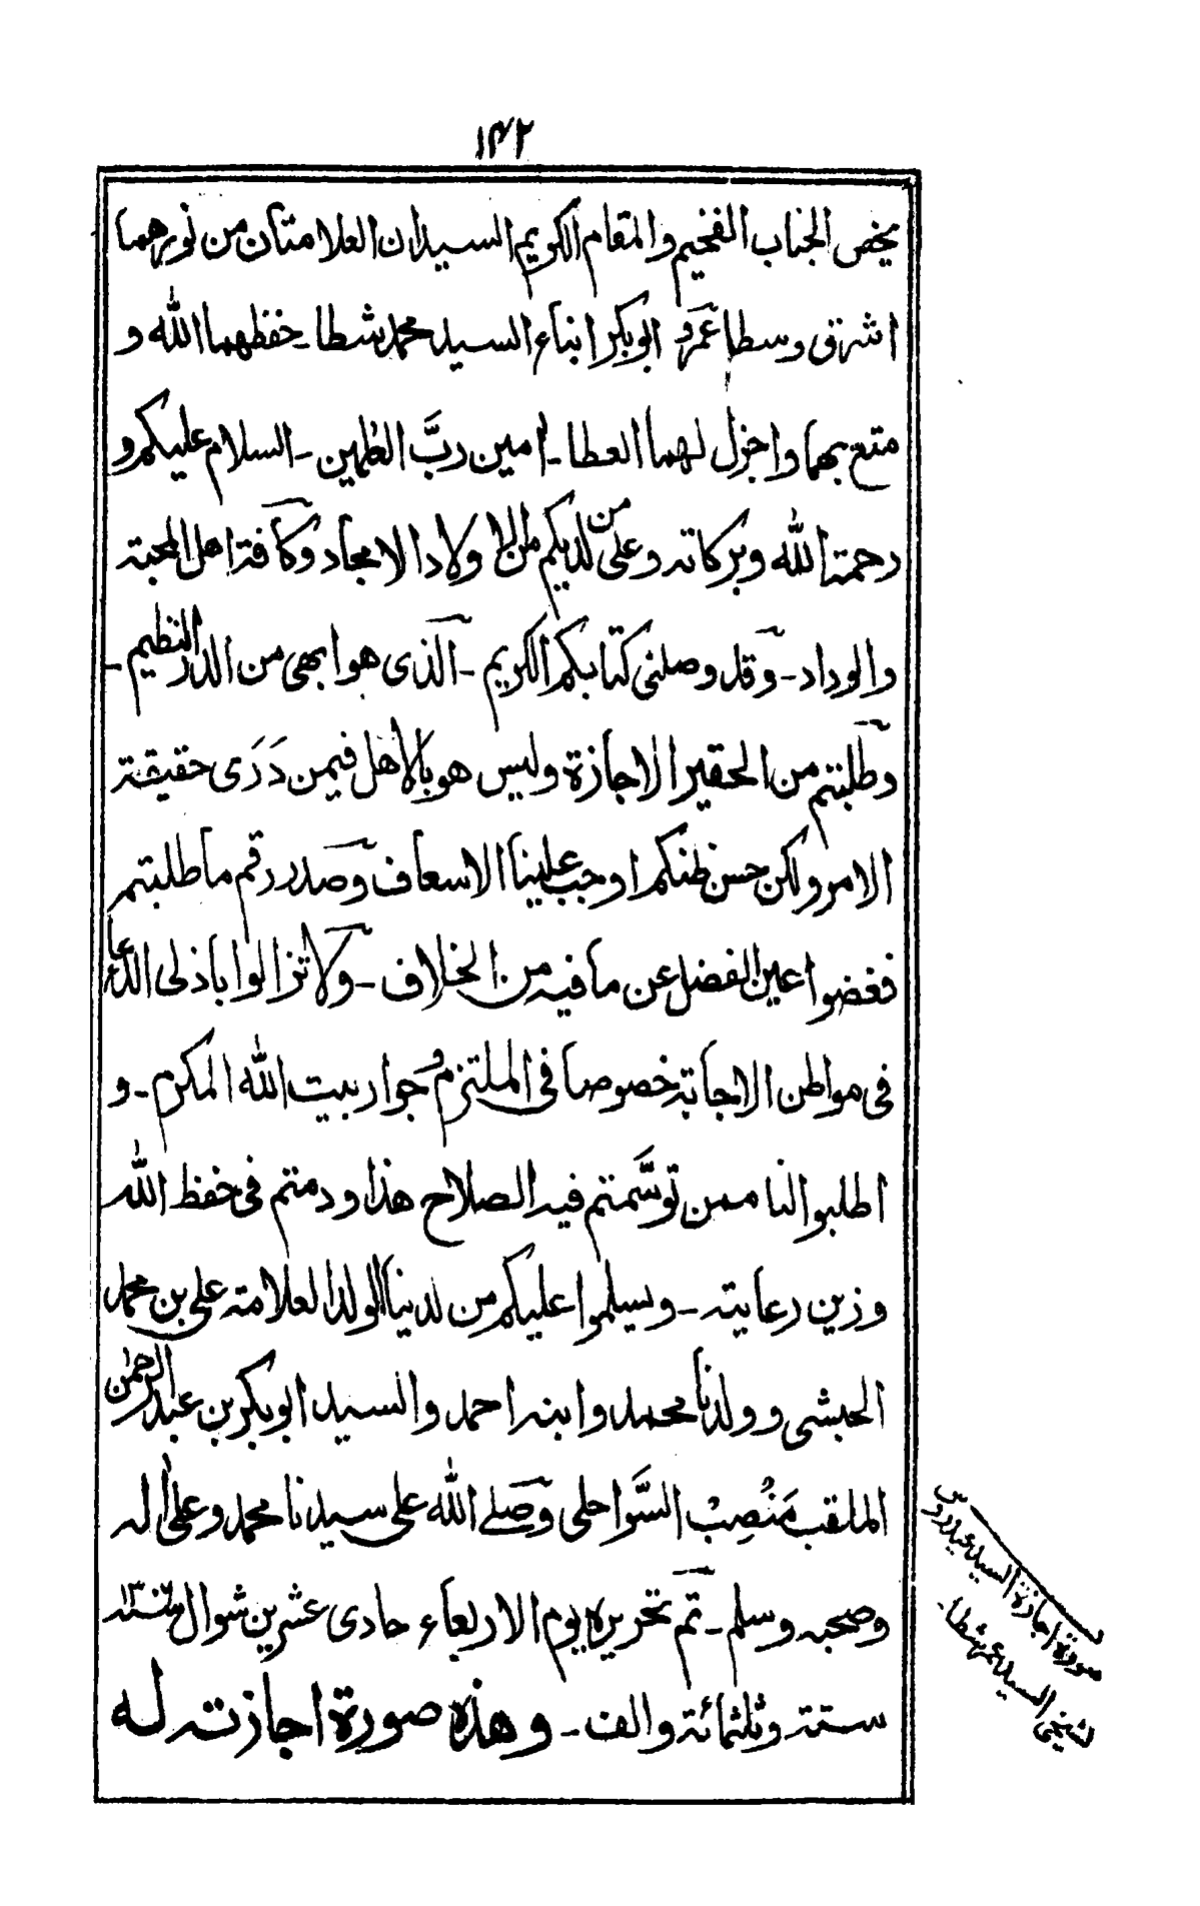 ١٤٢
يخص الجناب الفخيم والمقام الكريم السيدان العلامتان من نورهما
اشرق وسطا عمر و ابوبكر ابناء السيد محمد شطا۔ حفظهما الله و
متع بهما واجزل لهما العطا۔ اٰمين ربَّ العٰلمين۔ السلام عليكم و
رحمة الله وبركاته وعلى من لديكم من الاولاد الامجاد وكآفة اهل المحبة
والوداد۔ وقد وصلنى كتابكم الكريم۔ الذى هو ابهى من الدر النظيم۔
وطلبتم من الحقير الاجازة وليس هو بالاهل فيمن دَرَى حقيقة
الامر ولكن حسن ظنكم اوجب علينا الاسعاف وصدر رقم ما طلبتم
فغضوا عين الفضل عن ما فيه من الخلاف۔ ولا تزالوا باذلى الدعاء
فى مواطن الاجابة خصوصا فى الملتزم وجوار بيت الله المكرم۔ و
اطلبوا لنا ممن توسَّمتم فيه الصلاح هذا ودمتم فى حفظ الله
وزين رعايته۔ ويسلموا عليكم من لدينا الولد العلامة على بن محمد
الحبشى وولدنا محمد وابنه احمد والسيد ابوبكر بن عبد الرحمٰن
الملقب مَنْصِبْ السَّواحلى وصلے الله على سيدنا محمد وعلىٰ اٰله
وصحبه وسلم۔ تم تحريره يوم الاربعاء حادى عشرين شوال سنة ١٣٠٦
ستة وثلثمائة والف۔ وهذه صورة اجازته له
صورة اجازة السيد عيدروس
لشيخى السيد عمر شطا۔